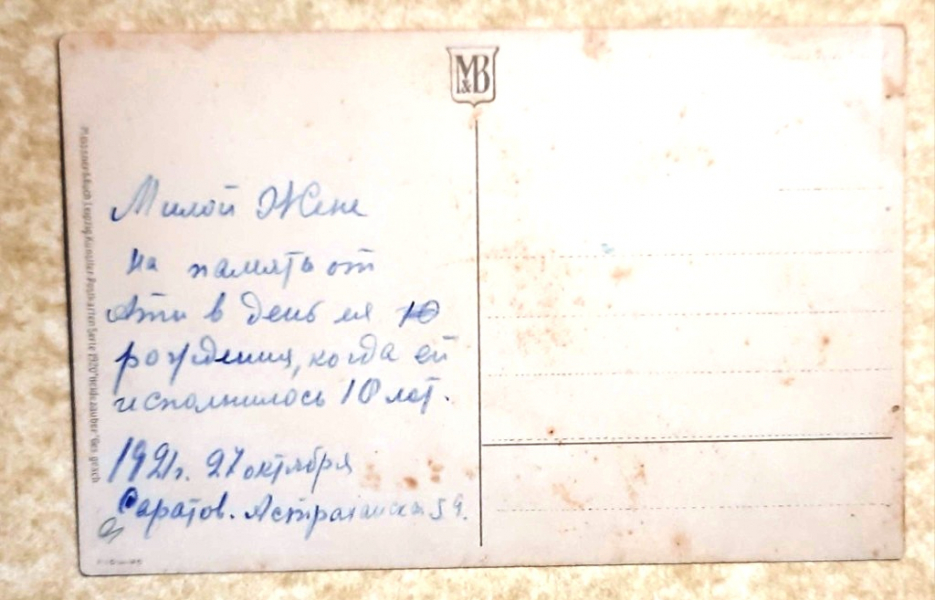 M&B
Милой Жене
на память от
Ати в день ея
рождения, когда ей
исполнилось 10 лет.
1921г. 27 октября
Саратов. Астраханская 59.
Meissner & Buch Leipzig Künstler-Postkarten Serie 1920 "Heidezauber" Ges. gesch